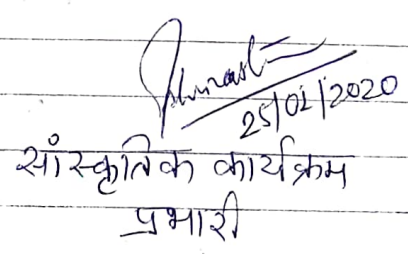 25/01/2020
साँस्कृतिक कार्यक्रम
प्रभारी